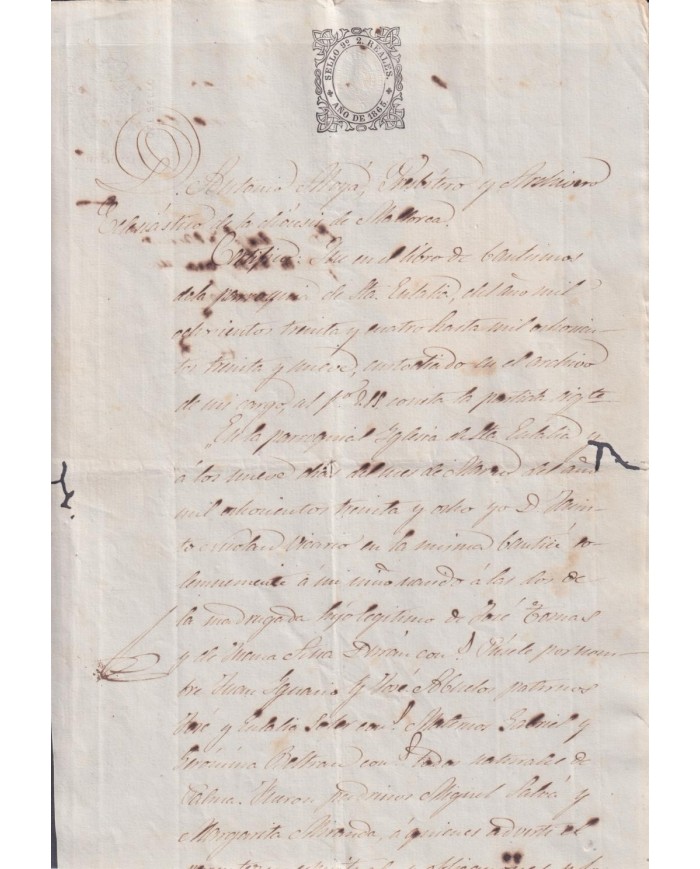 SELLO 9º 2 REALES.
AÑO DE 1865
D. Antonio Alloza, Presbitero y Archivero
Eclesiástico de la diócesis de Mallorca.
Certifico: Que en el libro de bautismos
de la parroquia de Sta. Eulalia, del año mil
ochocientos treinta y cuatro hasta mil ochocien-
tos treinta y nueve, custodiado en el archivo
de mi cargo, al fº 211 consta la partida sigte.
En la parroquial Iglesia de Sta. Eulalia
á los nueve dias del mes de Marzo del año
mil ochocientos treinta y ocho yo D.
Vicario en la misma bauticé so-
lemnemente á un niño nacido á las dos de
la madrugada hijo legitimo de José Tomas
y de con. Púsele por nom-
bre Juan Ignacio y José Abuelos paternos
José y Eulalia con. Maternos Gabriel y
Gerónima Beltran con. todos naturales de
Palma. Fueron padrinos Miguel Salvá y
Margarita Miranda, á quienes advertí el